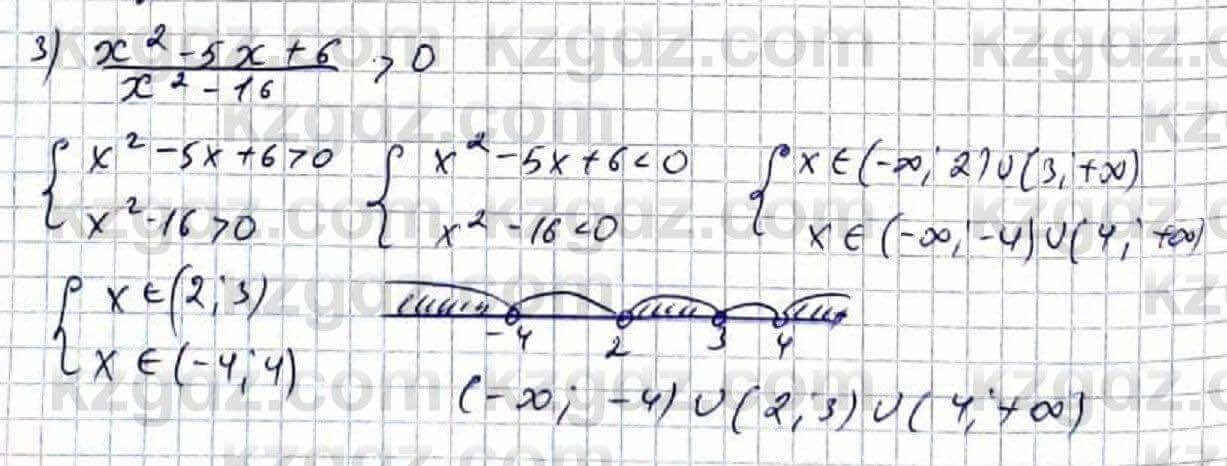 3) (x² - 5x + 6)/(x² - 16) > 0
{ x² - 5x + 6 > 0 { x² - 5x + 6 < 0 { x ∈ (-∞; 2) ∪ (3; +∞)
{ x² - 16 > 0 { x² - 16 < 0 { x ∈ (-∞; -4) ∪ (4; +∞)
{ x ∈ (2; 3)
{ x ∈ (-4; 4)
-4 2 3 4
(-∞; -4) ∪ (2; 3) ∪ (4; +∞)
kzgdz.com